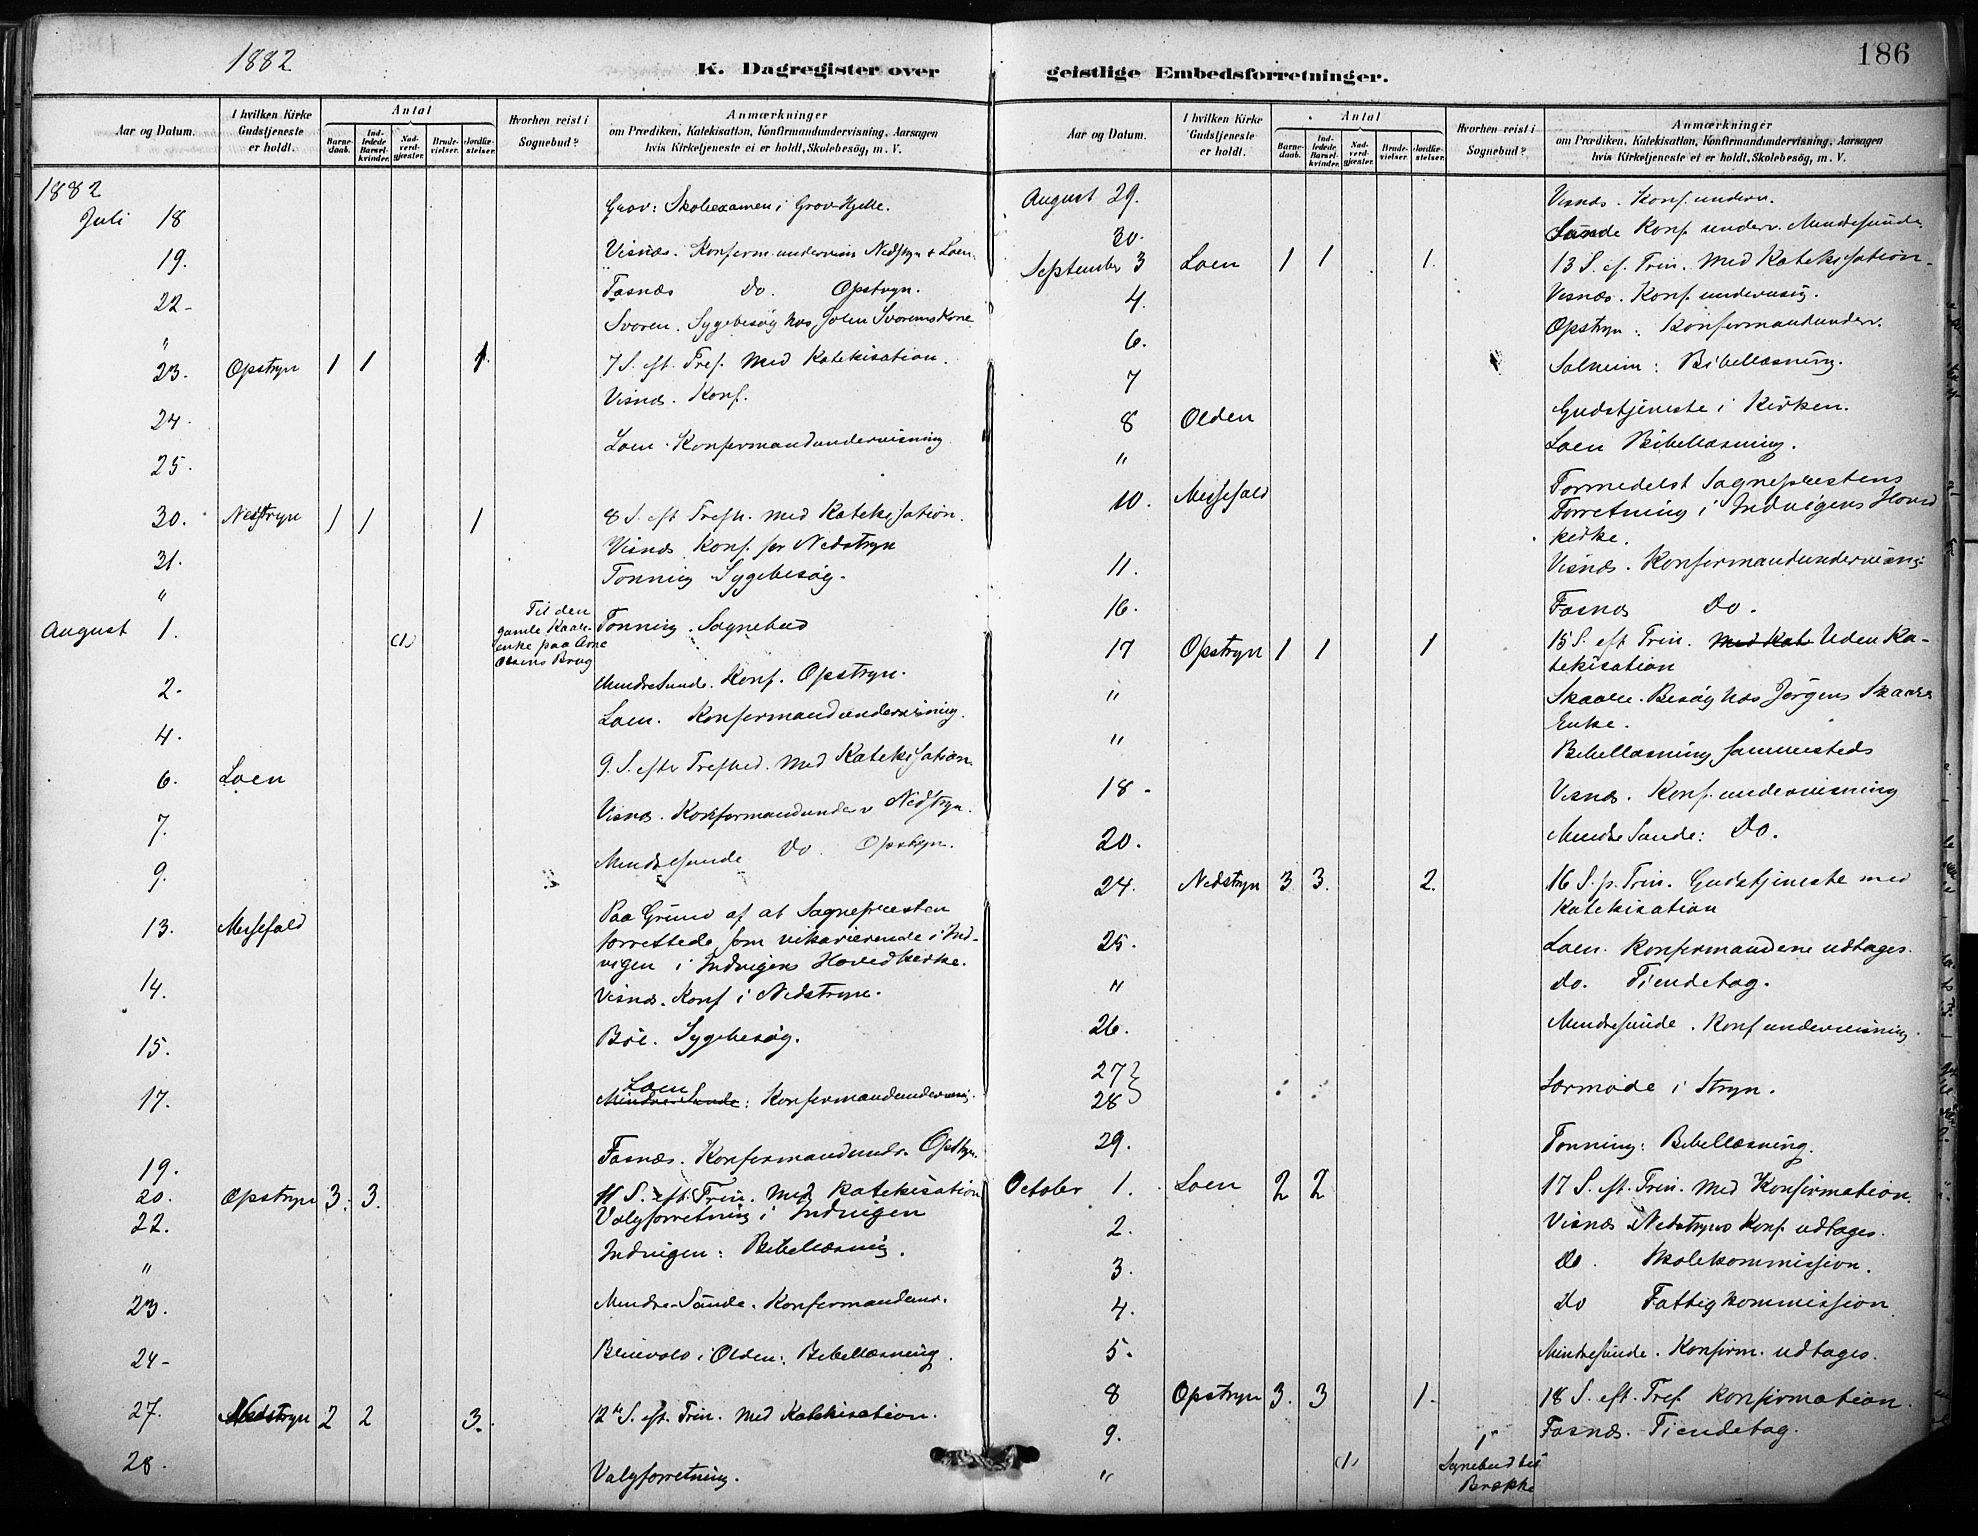 1882
K. Dagregister over
Aar og Datum.
I hvilken Kirke Gudstjeneste er holdt.
Antal
Barnedaab.
Indledede Barselkvinder.
Nadverdgjæster.
Brudevielser.
Jordfæstelser.
Hvorhen reist i Sognebud?
Anmærkninger
om Prædiken, Katekisation, Konfirmandundervisning, Aarsagen
hvis Kirketjeneste ei er holdt, Skolebesög, m. V.
1882
Juli 18 Grov: Skoleexamen i Grov Hjelle.
19. Visnæs. Konfirm. undervisn Nedstryn & Loen.
22- Fosnæs Do. Opstryn.
" Svoren. Sygebesøg hos Svorens Kone
23. Opstryn 1 1 1 7 S. eft. Tref. Med Katekisation.
24. Visnæs. Konf.
25. Loen. Konfirmandundervisning
30. Nedstryn 1 1 1 8 S. eft. Trefh. med Katekisation.
31. Visnæs Konf. for Nedstryn
" Tonning Sygebesøg.
August 1. (1) Til den gamle enke paa Brug Tonning. Sognebud
2. Mindre Sunde. Konf. Opstryn.
4. Loen. Konfirmandundervisning.
6. Loen 9. S. efter Trefhed. Med Katekisation.
7. Visnæs. Konfirmandunderv Nedstryn.
9. Mindresunde Do. Opstryn.
13. Messefald Paa Grund af at Sognepresten
forrettede som vikarierende i Ind-
vigen i Indvigens Hovedkirke.
14. Visnæs. Konf i Nedstryn.
15. Böe. Sygebesøg.
17. Loen
Mindre Sunde: Konfirmandundervisnig.
19. Fosnæs. Konfirmandundr. Opstryn.
20. Opstryn 3. 3. 11 S. eft. Trin. med Katekisation
22. Valgforretning i Indvigen
" Indvigen: Bibellæsning.
23. Mindre-Sunde. Konfirmandund.
24- i Olden: Bibellæsning.
27. Nedstryn 2 2 3. 12te S. eft. Trin. med Katekisation.
28. Valgforretning.
186
geistlige Embedsforretninger.
Aar og Datum.
I hvilken Kirke Gudstjeneste er holdt.
Antal
Barnedaab.
Indledede Barselkvinder.
Nadverdgjæster.
Brudevielser.
Jordfæstelser.
Hvorhen reist i Sognebud?
Anmærkninger
om Prædiken, Katekisation, Konfirmandundervisning, Aarsagen
hvis Kirketjeneste ei er holdt, Skolebesög, m. V.
August 29. Visnæs. Konf. underv.
30. Sunde Konf. underv. Mindresunde
September 3 Loen 1 1 1. 13 S. ef. Trin. Med Katekisation.
4. Visnæs. Konf. undervisnig.
6. Opstryn. Konfirmandunderv.
7 Solheim: Bibellæsning.
8 Olden Gudstjeneste i Kirken.
" Loen Bibellæsning.
10. Messefald Formedelst Sognepræstens
Forretning i Indvigens Hoved
kirke.
11. Visnæs. Konfirmandundervisnig.
16. Fosnæs Do.
17 Opstryn 1 1 1 15 S. eft Trin. Med Kat Uden Ka-
tekisation
" Skaare. Besøg hos Jørgens Skaares
Enke.
" Bibellæsning sammesteds
18. Visnæs. Konf. undervisning
20. Mindre Sunde: Do.
24. Nedstryn 3 3. 2. 16 S. p. Trin. Gudstjeneste med
Katekisation
25. Loen. Konfirmandene udtages.
" do. Tiendetag.
26. Mindresunde. Konf undervisning.
27
28 Lærmøde i Stryn.
29. Tonning: Bibellæsning.
October 1. Loen 2 2 17 S. eft. Trin. Med Konfirmation.
2. Visnæs Nedstryns Konf. udtages.
3. do. Skolekommission.
4. do Fattigkommission
5. Mindresunde. Konfirm. udtages.
8 Opstryn 3. 3 1. 18 S. eft. Tref. Konfirmation.
9. Fosnæs. Tiendetag.
" (1) Sognebud til Brække